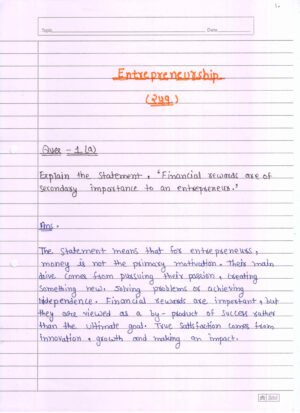 Topic
Date
Entrepreneurship
(249)
Ques - 1.(a)
Explain the Statement, "Financial rewards are of
secondary importance to an entrepreneur."
Ans.
The Statement means that for entrepreneurs,
money is not the primary motivation. Their main
drive comes from pursuing their passion, creating
Something new, Solving problems or achieving
independence. Financial rewards are important, but
they are viewed as a by-product of success rather
than the ultimate goal. True Satisfaction comes from
innovation, growth and making an impact.